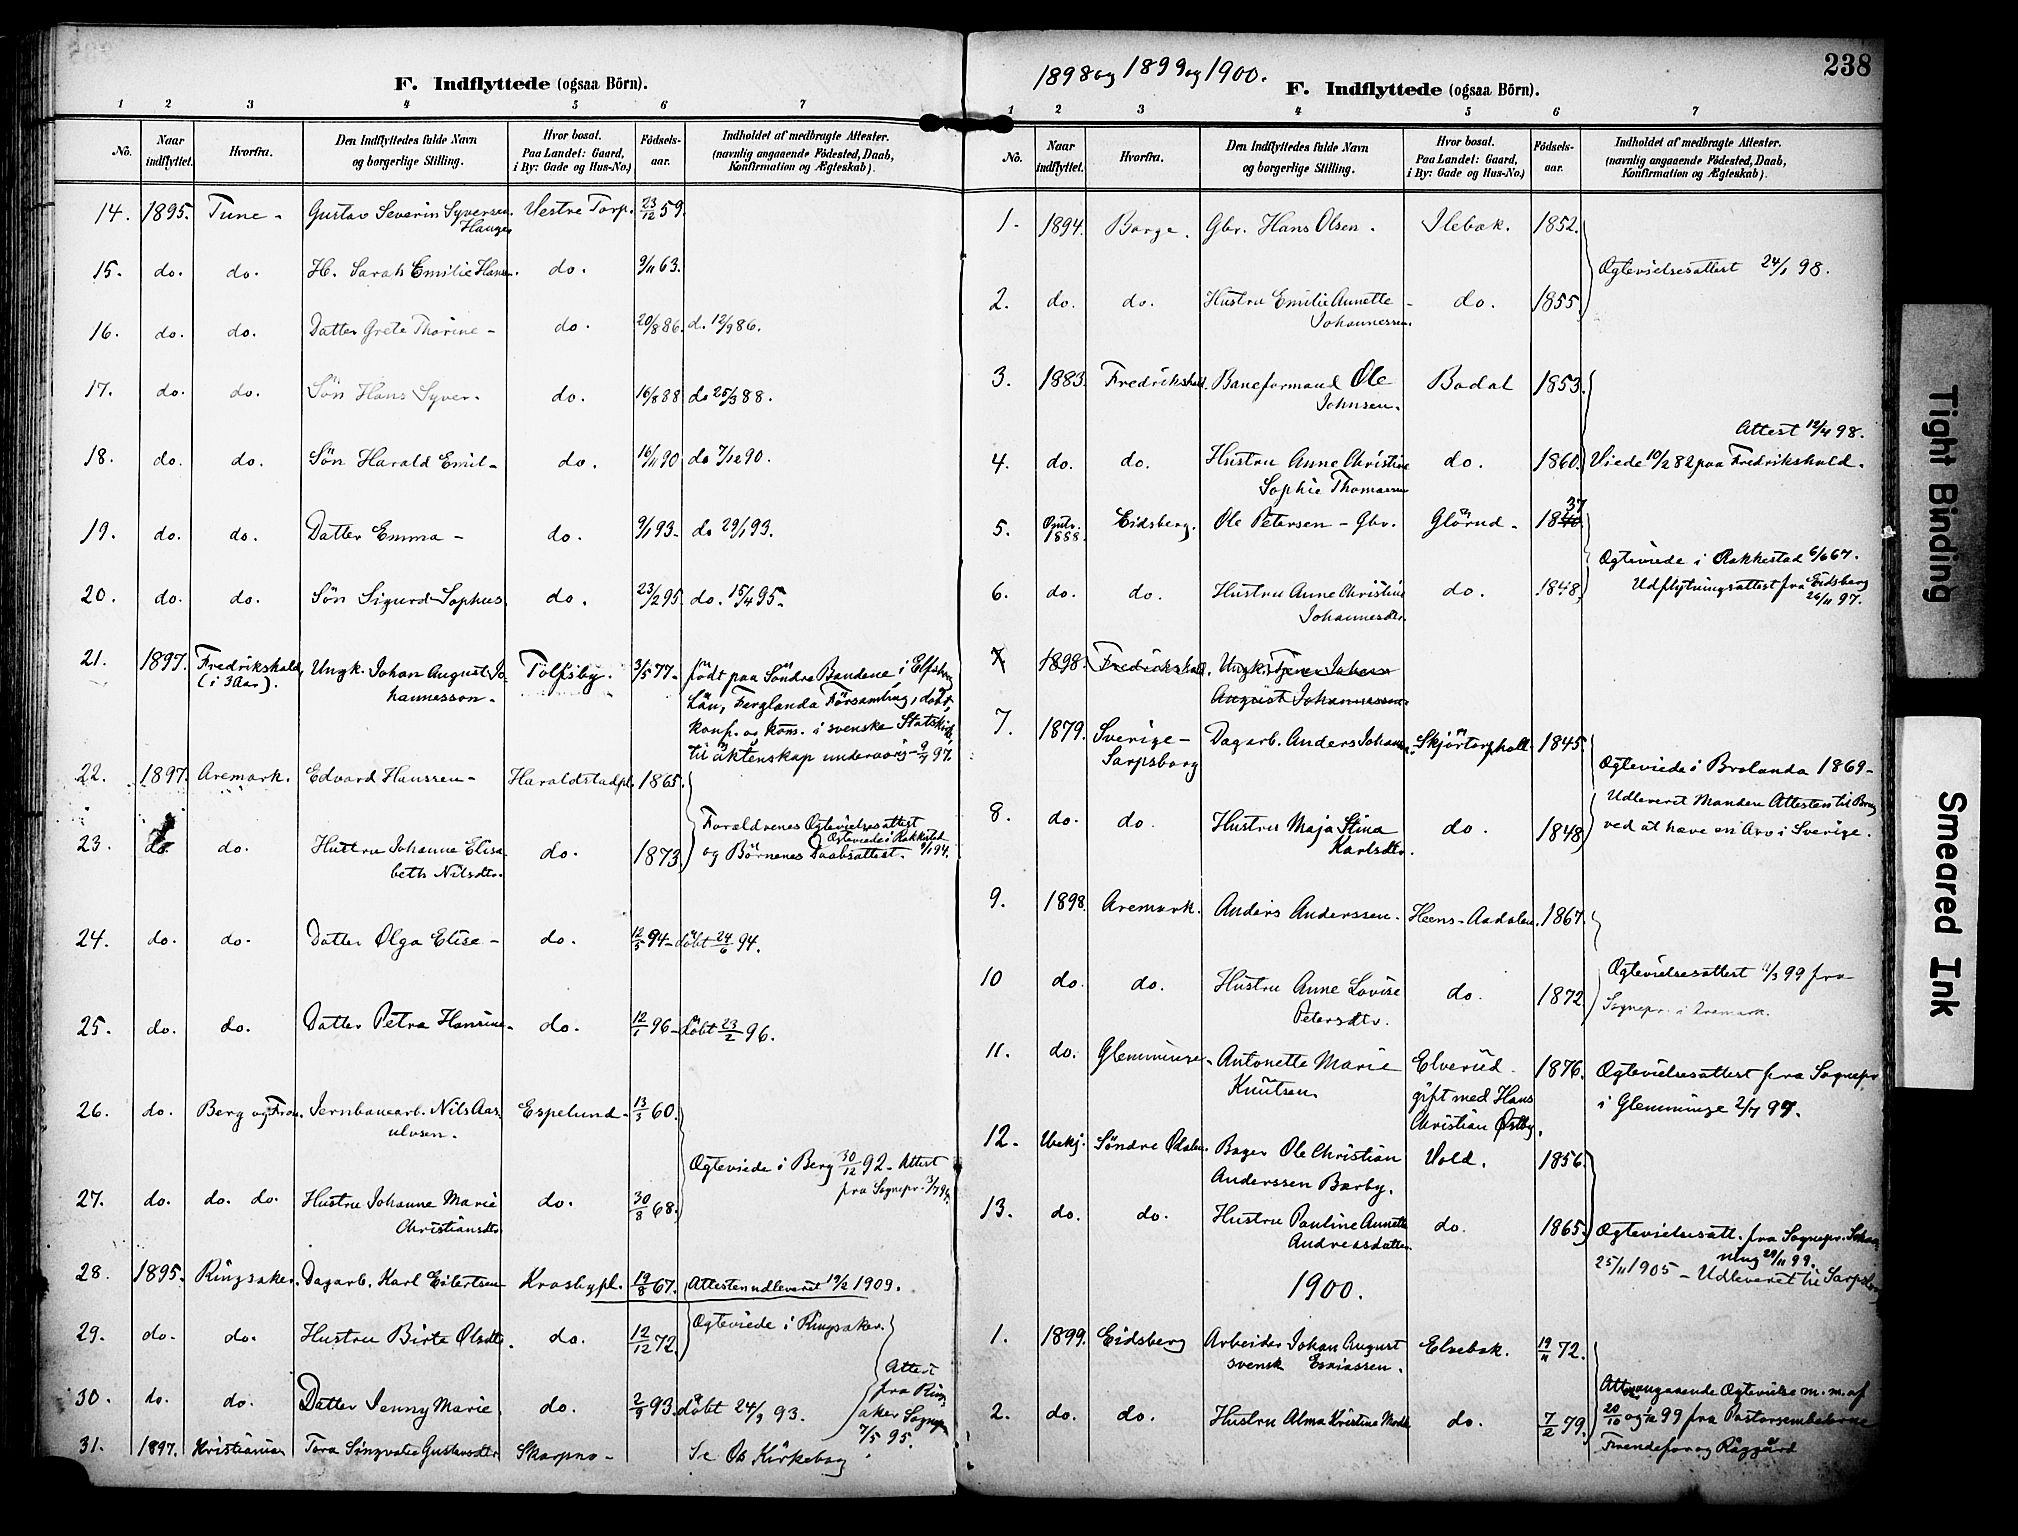 F. Indflyttede (ogsaa Börn).
1 2 3 4 5 6 7
No. Naar indflyttet. Hvorfra. Den Indflyttedes fulde Navn og borgerlige Stilling. Hvor bosat. Paa Landet: Gaard, i By: Gade og Hus-No.) Födsels-aar. Indholdet af medbragte Attester. (navnlig angaaende Födested, Daab, Konfirmation og Ægteskab).
14. 1895. Tune - Gustav Severin Syversen Vestre Torp. 23/12 59.
Hauge
15. do. do. H. Sarah Emilie Hansen. do. 9/11 63.
16. do. do. Datter Grete Thorine - do. 20/8 86. d. 12/9 86.
17. do. do. Sön Hans Syver. do. 16/8 88 do 25/3 88.
18. do. do. Sön Harald Emil - do. 16/11 90 do 7/12 90.
19. do. do. Datter Emma - do. 9/1 93 - do 29/1 93.
20. do. do. Sön Sigurd Sophus. do. 23/2 95 do. 15/4 95.
21. 1897. Fredrikshald, Ungk. Johan August Jo- Tolfsby. 3/5 77 - födt paa Söndre Bandene i Elfsborg
(i 3 Aar). hannesson - Län, Ferglanda Församling, döbt,
konf. og kons. i svenske Statskirke,
til äktenskap - 9/7 97.
22. 1897. Aremark. Edvard Hanssen - Haraldstadpl. 1865.
Forældrenes Ægtevielsesattest
Ægteviede i Rakkestad
23. do do. Hustru Johanne Elisa- do. 1873 og Börnenes Daabsattest. 9/1 94.
beth Nilsdtr.
24. do. do. Datter Olga Elise - do. 12/5 94 - döbt 24/6 94.
25. do. do. Datter Petra Hansine. do. 12/1 96 - döbt 23/2 96.
26. do. Berg og Fron. Jernbanearb. Nils Aas- Espelund - 13/3 60.
ulvsen.
Ægteviede i Berg 30/12 92 - Attest
fra Sognepr. 3/7 94.
27. do. do. do. Hustru Johanne Marie do. 30/8 68.
Christiansdtr.
28. 1895. Ringsaker. Dagarb. Karl Eilertsen Krosbypl. 19/8 67. Attesten udleveret 19/2 1909.
Ægteviede i Ringsaker.
29. do. do. Hustru Birte Olsdtr. do. 12/12 72.
Attest
fra Ring-
30. do. do. Datter Jenny Marie. do. 2/9 93. döbt 24/9 93. aker Sognepr
7/5 95.
31. 1897. Kristiania Tora Gustavsdtr. Skarpno - Se Os Kirkebog
238
1898 og 1899 og 1900.
F. Indflyttede (ogsaa Börn).
1 2 3 4 5 6 7
No. Naar indflyttet. Hvorfra. Den Indflyttedes fulde Navn og borgerlige Stilling. Hvor bosat. Paa Landet: Gaard, i By: Gade og Hus-No.) Födsels-aar. Indholdet af medbragte Attester. (navnlig angaaende Födested, Daab, Konfirmation og Ægteskab).
1. 1894. Borge. Gbr. Hans Olsen. Ilebak. 1852.
Ægtevielsesattest 24/1 98.
2. do. do. Hustru Emilie Annette - do. 1855.
Johannessen.
3. 1883. Fredrikshald. Baneformand Ole Bodal 1853.
Johnsen.
Attest 12/4 98.
4. do. do. Hustru Anne Christine do. 1860. Viede 10/2 82 paa Fredrikshald.
Sophie Thomassen
37
5. Omtr. 1888. Eidsberg. Ole Petersen - Gbr. Glörud - 1840
Ægteviede i Rakkestad 6/6 67.
Udflytningsattest fra Eidsberg
26/11 97.
6. do. do. Hustru Anne Christine do. 1848,
Johannesdtr.
7 1898. Fredrikshald. Ungk. Tjener Johan
August Johannessen.
7. 1879. Sverige - Dagarb. Anders Johans. Skjörtorphall. 1845.
Sarpsborg
Ægteviede i Brolanda 1869 -
Udleveret Manden Attesten til Brug
8. do. do. Hustru Maja Stina do. 1848 ved at have en Arv i Sverige.
Karlsdtr.
9. 1898. Aremark. Anders Anderssen. Heens-Aadalen. 1867.
Ægtevielsesattest 11/3 99 fra
10 do. do. Hustru Anne Lovise do. 1872 Sognepr. i Aremark.
Petersdtr.
11. do. Glemminge. Antonette Marie Elverud. 1876. Ægtevielsesattest fra Sognepr
Knutsen gift med Hans i Glemminge 2/7 97.
Christian Østby.
12. Ubekj. Söndre Odalen. Bager Ole Christian Vold. 1856.
Anderssen Barby.
13. do. do. Hustru Pauline Annette do. 1865. Ægtevielsesatt. fra Sognepr.
Andreasdatter. 29/11 99.
25/11 1905 - Udleveret til Sarpsborg
1900.
1. 1899. Eidsberg Arbeider Johan August Elvebak. 19/11 72.
svensk Esaiassen.
Attest angaaende Ægtevielse m.m. af
20/10 og 99 fra Pastorsembederne
2. do. do. Hustru Alma Kristina do. 7/2 79.
Frendefor og Råggärd
Tight Binding
Smeared Ink